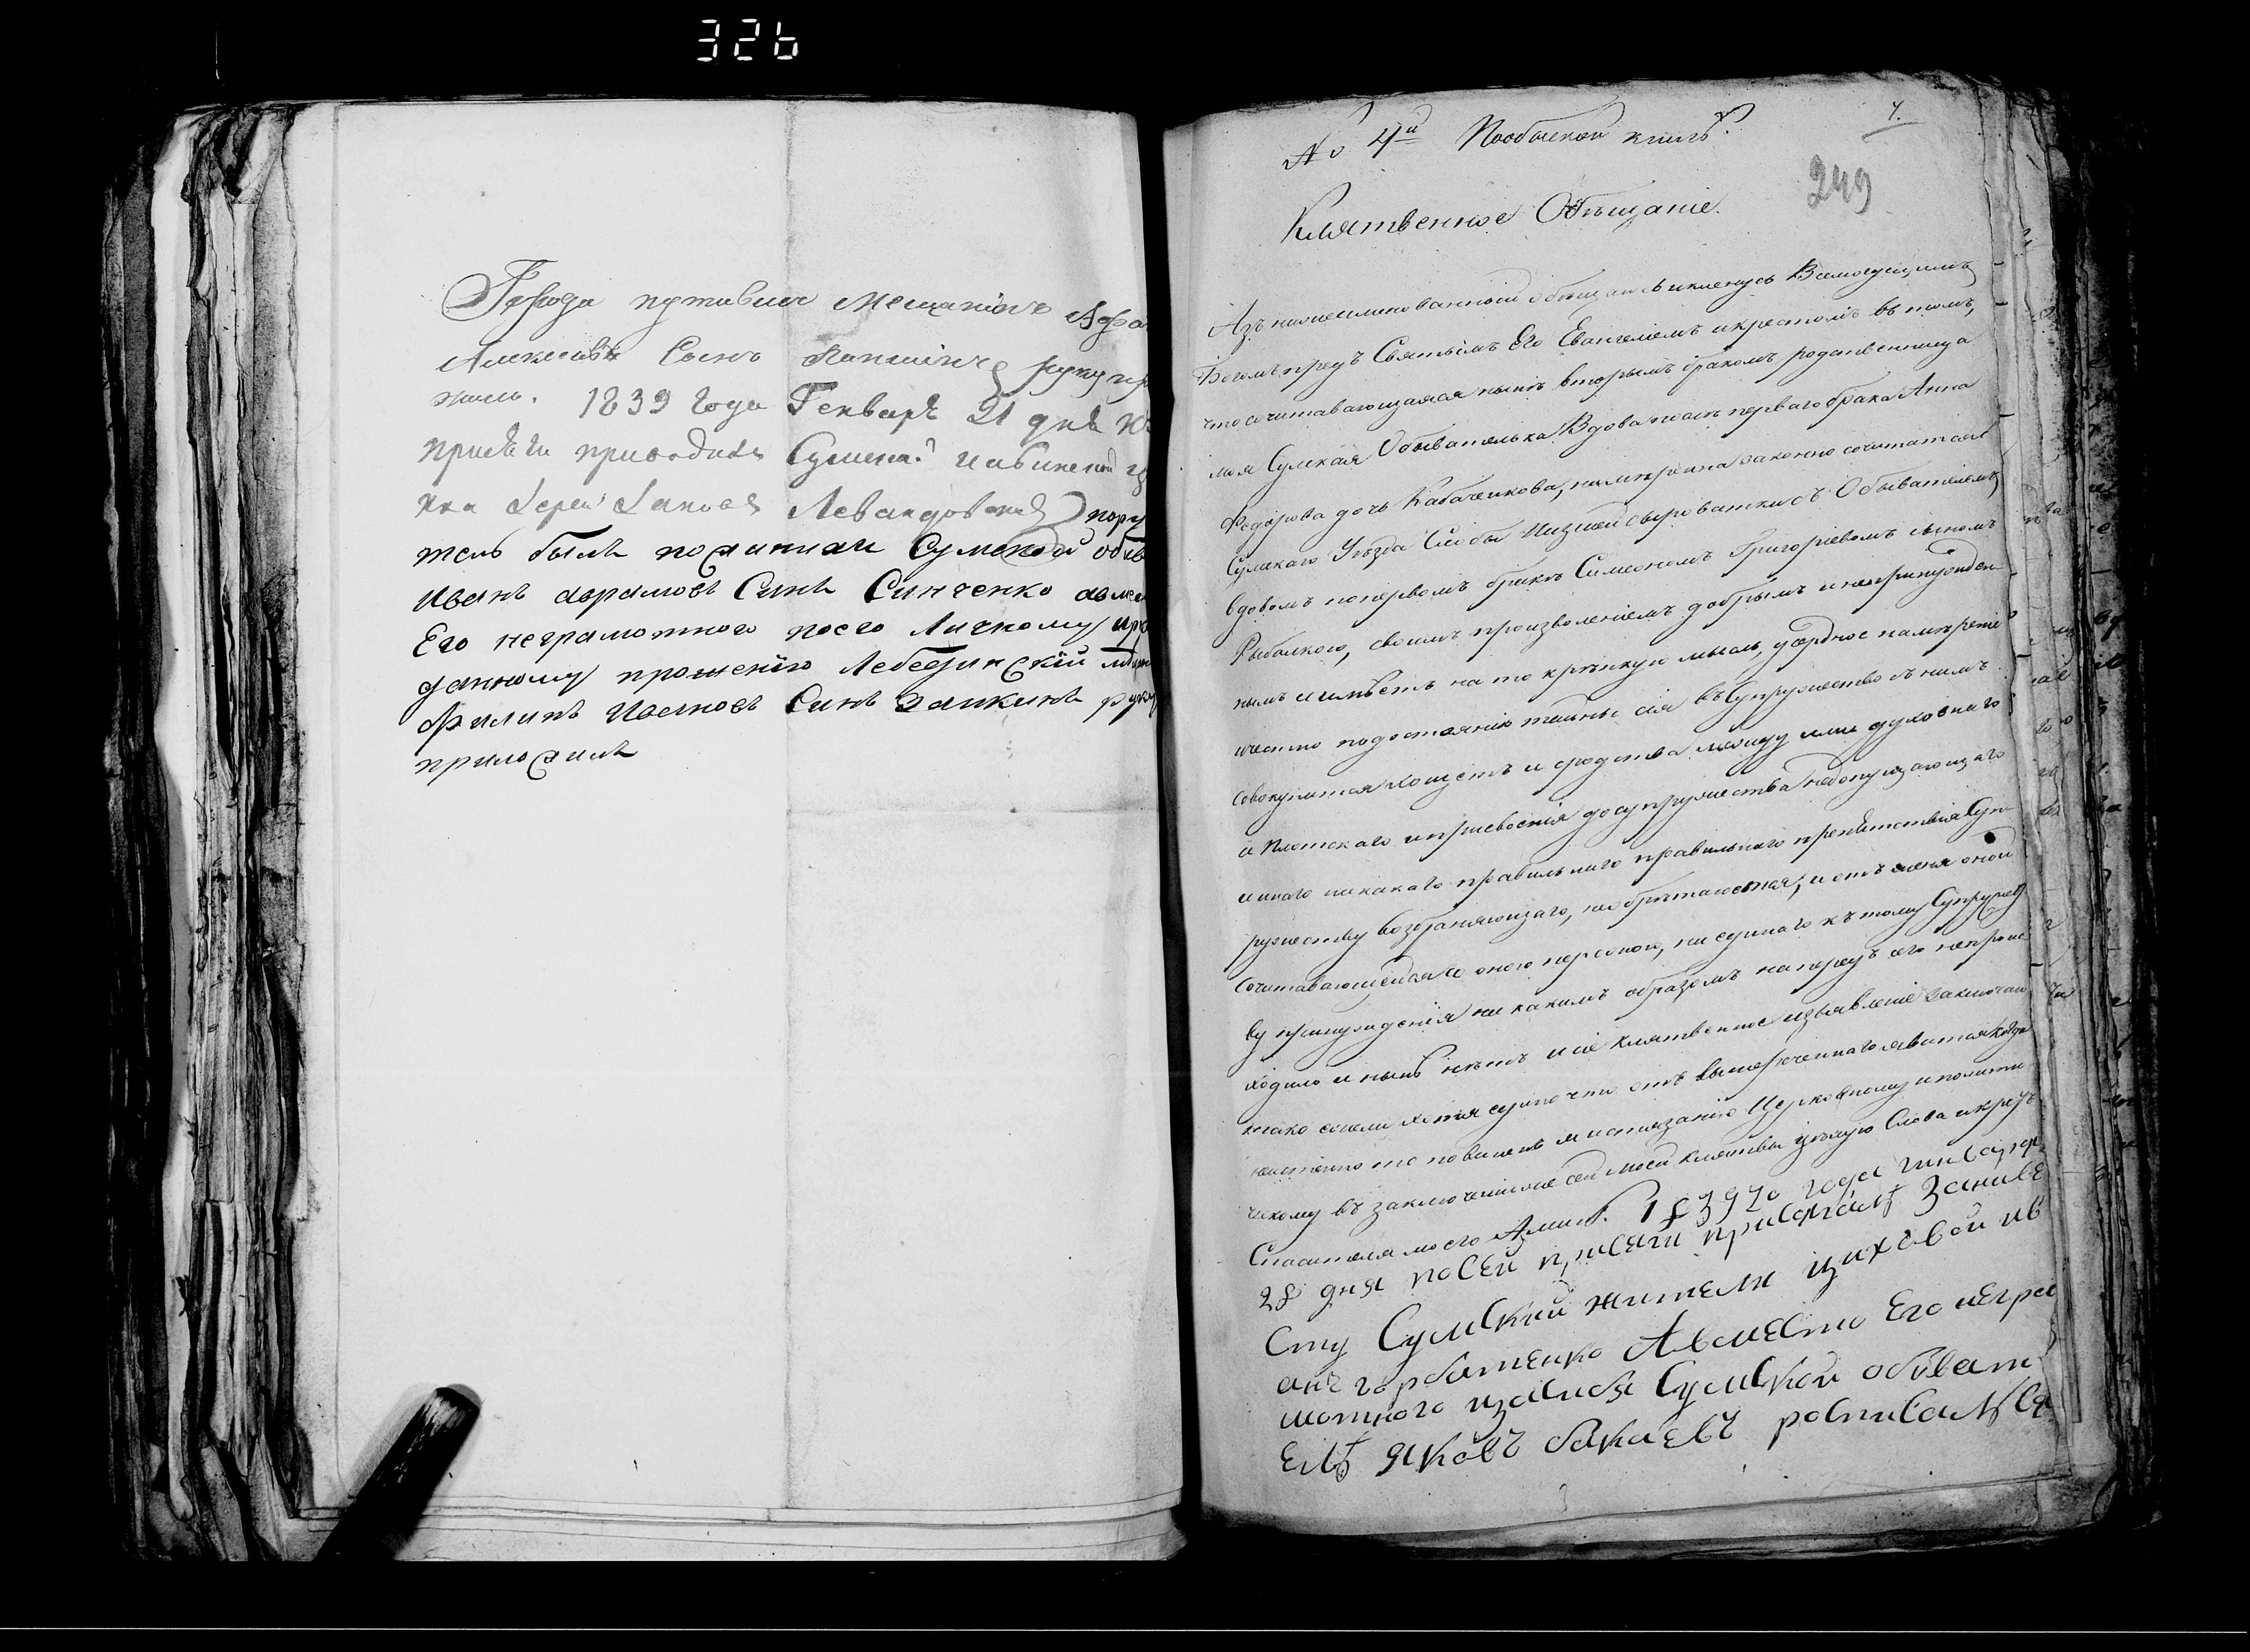 326
Города путивля Мещанинъ Афа
Алексѣевъ Сынъ руку при
жилъ. 1839 года Генваря 21 дня
присяги приводилъ Сумской
Іерей Іаковъ Левандовскій пору
тель былъ по синмъ Сумской обыв
Иванъ аврамовъ Синъ Синченко авмес
Его неграмотного поего Личному
данному прошенію Лебединскій
Филипъ Ивановъ Синъ Заикинъ руку
приложилъ
№ 4й Пообыскной книгѣ
4.
249
Клятвенное Обѣщаніе.
Азъ нижеименованный обѣщаюсь и кленусь Всемогущимъ
Богомъ предъ Святымъ Его Евангеліемъ и крестомъ въ томъ,
что сочитавающаяся нынѣ вторымъ бракомъ родственница
моя Сумская Обывателька Вдова послѣ перваго брака Анна
Федорова дочь Кабаченкова, намѣренна законно сочитатся
Сумскаго Уѣзда Слободы Низшей Сыроватки съ Обывателемъ
вдовомъ попервомъ бракѣ Симеономъ Григоріевомъ сыномъ
Рыбалкою, своимъ произволеніемъ добрымъ и непринужден
нымъ и имѣетъ на то крѣпкую мысль, усердное намѣреніе
и честно по достоянію тайны сія въ супружество съ нимъ
совокупится хощетъ и сродства между ими духовнаго
и Плотскаго и присвоенія до супружества недопущающаго
и инаго никакаго правильнаго препятствія Суп-
ружеству возбраняющаго, необрѣтается, и отъ меня оной
сочитавающейся со оною персоною, ни единаго къ тому Супружест
ву принужденія ни какимъ образомъ напредъ его непроис
ходило и нынѣ нѣтъ и сіе клятвенное изъявленіе заключаю
тако сжели хотя едино что отъ вышереченнаго явится когда
неистенно то повиненъ и истязанію Церковному и полити
ческому въ заключеніиже сей моей клятвы цѣлую Слова и крестъ
Спасителя моего Аминь. 1839го года генваря
28 дня посей присяги присягалъ Занивѣ
сту Сумский житель цихавой ив
анъ горбатенко Авмѣсто Его негра
мотного иза Сумской обиват
ель Яковъ бакаевъ росписался